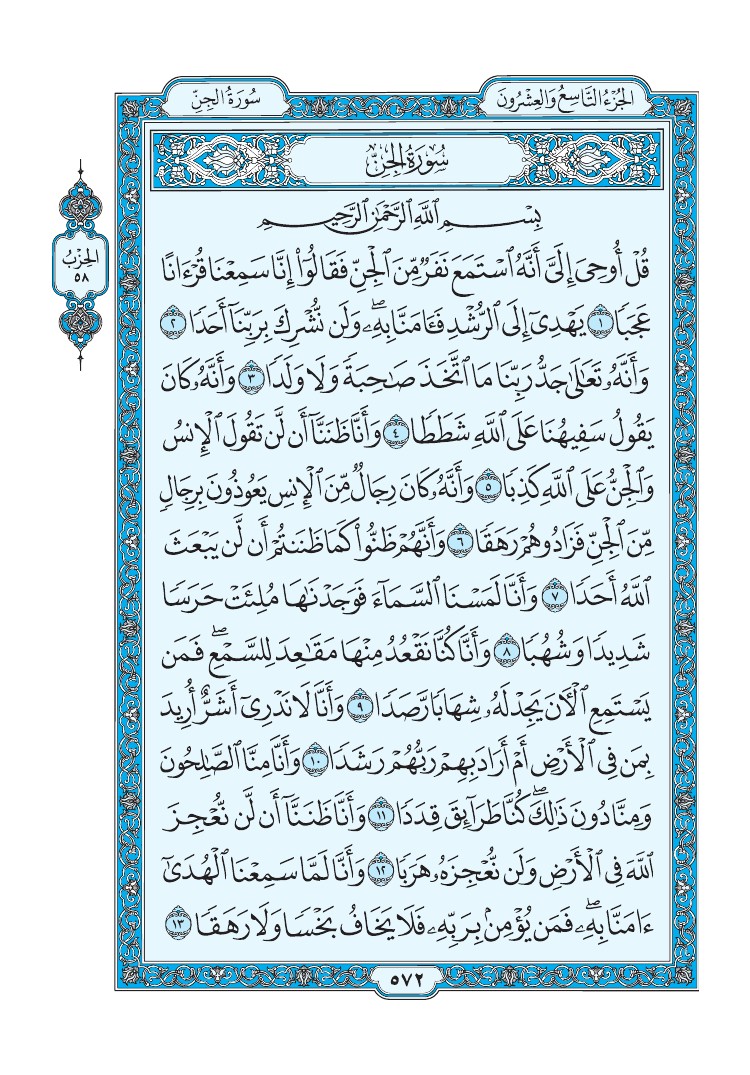 الجُزْءُ التَّاسِعُ وَالعِشْرُونَ
سُورَةُ الجِنِّ
سُورَةُ الجِنِّ
بِسْمِ ٱللَّهِ ٱلرَّحْمَٰنِ ٱلرَّحِيمِ
الحِزْبُ
٥٨
قُلْ أُوحِيَ إِلَيَّ أَنَّهُ ٱسْتَمَعَ نَفَرٌ مِّنَ ٱلْجِنِّ فَقَالُوٓا۟ إِنَّا سَمِعْنَا قُرْءَانًا
عَجَبًا ١ يَهْدِىٓ إِلَى ٱلرُّشْدِ فَـَٔامَنَّا بِهِۦ ۖ وَلَن نُّشْرِكَ بِرَبِّنَآ أَحَدًا ٢
وَأَنَّهُۥ تَعَٰلَىٰ جَدُّ رَبِّنَا مَا ٱتَّخَذَ صَٰحِبَةً وَلَا وَلَدًا ٣ وَأَنَّهُۥ كَانَ
يَقُولُ سَفِيهُنَا عَلَى ٱللَّهِ شَطَطًا ٤ وَأَنَّا ظَنَنَّآ أَن لَّن تَقُولَ ٱلْإِنسُ
وَٱلْجِنُّ عَلَى ٱللَّهِ كَذِبًا ٥ وَأَنَّهُۥ كَانَ رِجَالٌ مِّنَ ٱلْإِنسِ يَعُوذُونَ بِرِجَالٍ
مِّنَ ٱلْجِنِّ فَزَادُوهُمْ رَهَقًا ٦ وَأَنَّهُمْ ظَنُّوا۟ كَمَا ظَنَنتُمْ أَن لَّن يَبْعَثَ
ٱللَّهُ أَحَدًا ٧ وَأَنَّا لَمَسْنَا ٱلسَّمَآءَ فَوَجَدْنَٰهَا مُلِئَتْ حَرَسًا
شَدِيدًا وَشُهُبًا ٨ وَأَنَّا كُنَّا نَقْعُدُ مِنْهَا مَقَٰعِدَ لِلسَّمْعِ ۖ فَمَن
يَسْتَمِعِ ٱلْـَٔانَ يَجِدْ لَهُۥ شِهَابًا رَّصَدًا ٩ وَأَنَّا لَا نَدْرِىٓ أَشَرٌّ أُرِيدَ
بِمَن فِى ٱلْأَرْضِ أَمْ أَرَادَ بِهِمْ رَبُّهُمْ رَشَدًا ١٠ وَأَنَّا مِنَّا ٱلصَّٰلِحُونَ
وَمِنَّا دُونَ ذَٰلِكَ ۖ كُنَّا طَرَآئِقَ قِدَدًا ١١ وَأَنَّا ظَنَنَّآ أَن لَّن نُّعْجِزَ
ٱللَّهَ فِى ٱلْأَرْضِ وَلَن نُّعْجِزَهُۥ هَرَبًا ١٢ وَأَنَّا لَمَّا سَمِعْنَا ٱلْهُدَىٰٓ
ءَامَنَّا بِهِۦ ۖ فَمَن يُؤْمِنۢ بِرَبِّهِۦ فَلَا يَخَافُ بَخْسًا وَلَا رَهَقًا ١٣
٥٧٢